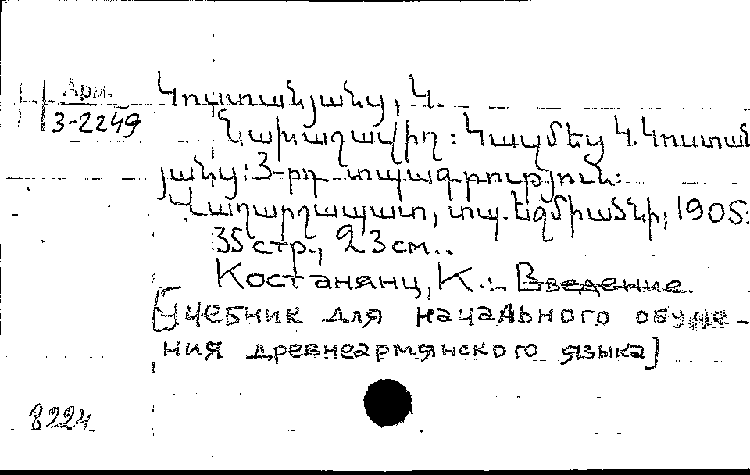 Арм.
3-2249
Կոստանյանց, Կ.
Նախաշավիղ: Կազմեց Կ. Կոստան
յանց: 3-րդ տպագրություն:
Վաղարշապատ, տպ. Էջմիածնի, 1905:
35 стр., 23 см..
Костанянц, К.: Введение
[Учебник для начального обуче-
ния древнеармянского языка]
8224